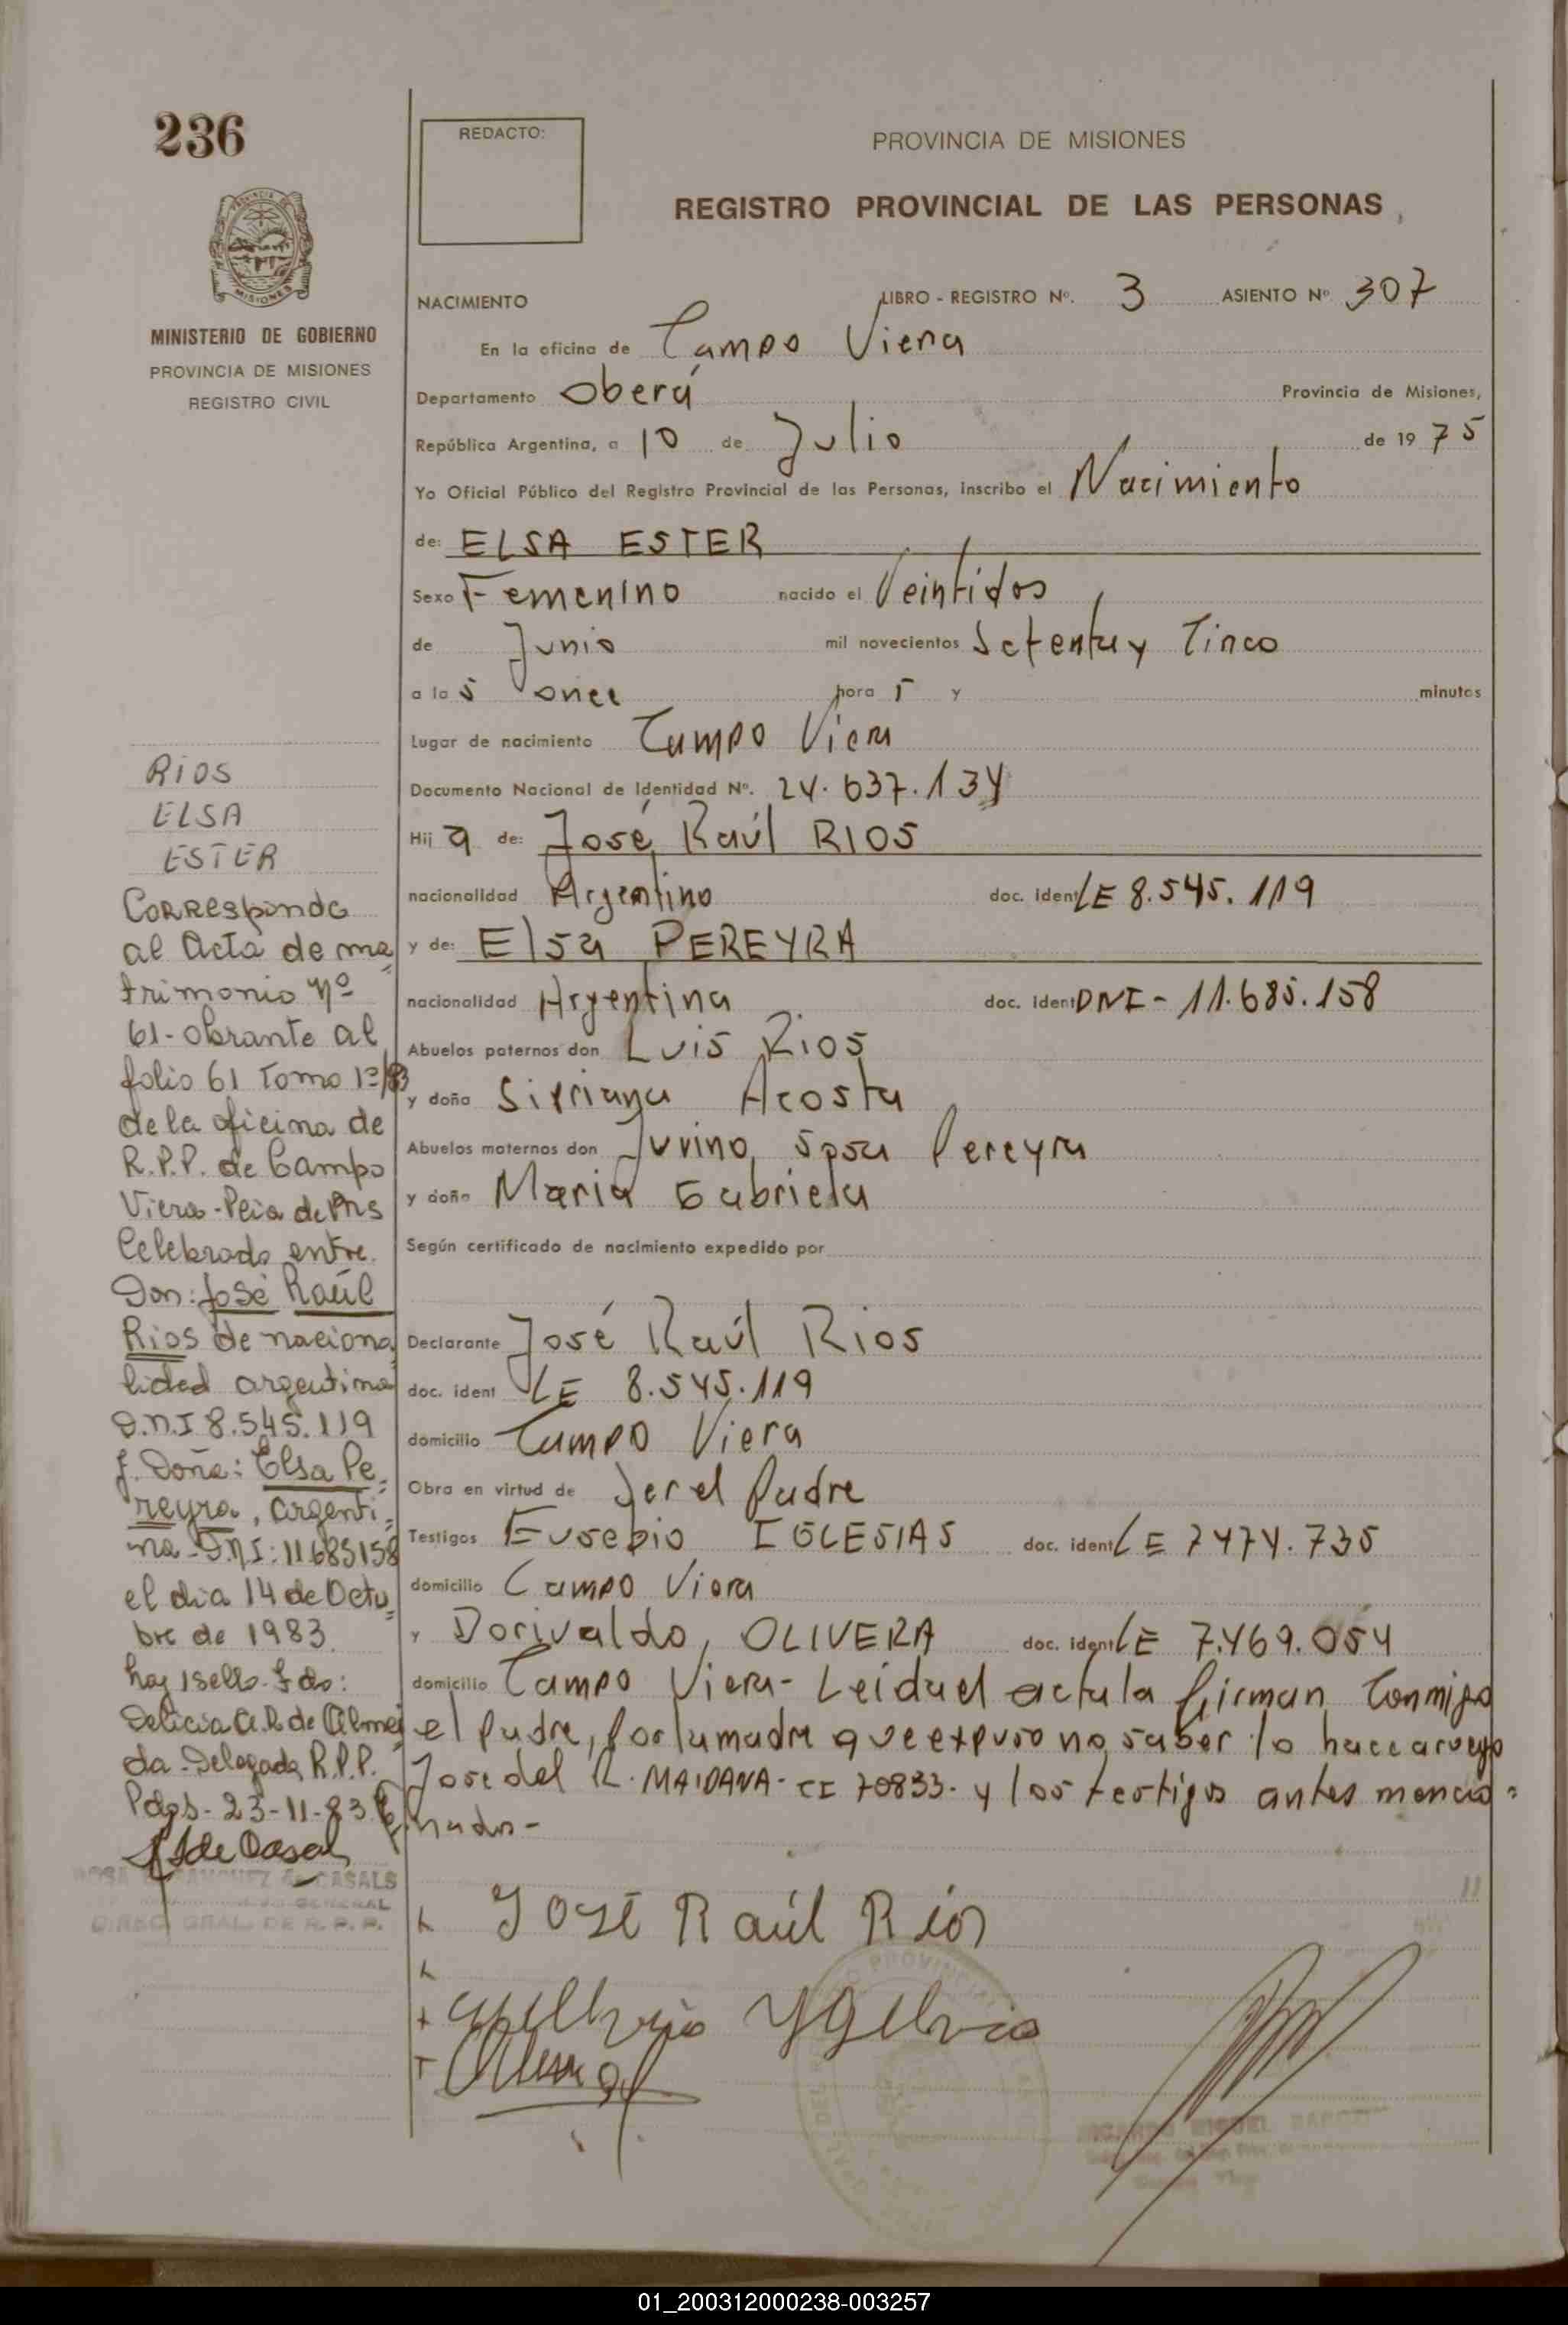 236
MISIONES
MINISTERIO DE GOBIERNO
PROVINCIA DE MISIONES
REGISTRO CIVIL
RIOS
ELSA
ESTER
Corresponde
al Acta de ma=
trimonio Nº
61-obrante al
folio 61 Tomo 1º/83
de la oficina de
R.P.P. de Campo
Viera-Pcia de Mns
Celebrado entre
Don: José Raúl
Rios de naciona=
lidad argentina
D.N.I 8.545.119
y Doña: Elsa Pe=
reyra, argenti=
na-D.N.I: 11685158
el dia 14 de Octu=
bre de 1983.
hay 1 sello. Fdo:
Delicia A.R. de Almei
da-Delegada R.P.P.
Pdas- 23-11-83
CASALS
GENERAL
DIREC GRAL DE R.P.P.
REDACTO:
PROVINCIA DE MISIONES
REGISTRO PROVINCIAL DE LAS PERSONAS
NACIMIENTO LIBRO - REGISTRO Nº. 3 ASIENTO Nº 307
En la oficina de Campo Viera
Departamento Oberá Provincia de Misiones,
República Argentina, a 10 de Julio de 1975
Yo Oficial Público del Registro Provincial de las Personas, inscribo el Nacimiento
de: ELSA ESTER
Sexo Femenino nacido el Veintidos
de Junio mil novecientos Setenta y Cinco
a las once horas y minutos
Lugar de nacimiento Campo Viera
Documento Nacional de Identidad Nº. 24.637.134
Hija de: José Raúl RIOS
nacionalidad Argentino doc. ident LE 8.545.119
y de: Elsa PEREYRA
nacionalidad Argentina doc. ident DNI - 11.685.158
Abuelos paternos don Luis Rios
y doña Sipriana Acosta
Abuelos maternos don Juvino Sosa Pereyra
y doña Maria Gabriela
Según certificado de nacimiento expedido por
Declarante José Raúl Rios
doc. ident LE 8.545.119
domicilio Campo Viera
Obra en virtud de Ser el Padre
Testigos Eusebio IGLESIAS doc. ident LE 7474.735
domicilio Campo Viera
y Dorivaldo, OLIVERA doc. ident LE 7.469.054
domicilio Campo Viera- Leida el acta la firman Conmigo
el padre, por la madre que expuso no saber lo hace a ruego
Jose del R. MAIDANA- CI 70833- y los testigos antes mencio=
nados-
José Raúl Ríos
01_200312000238-003257